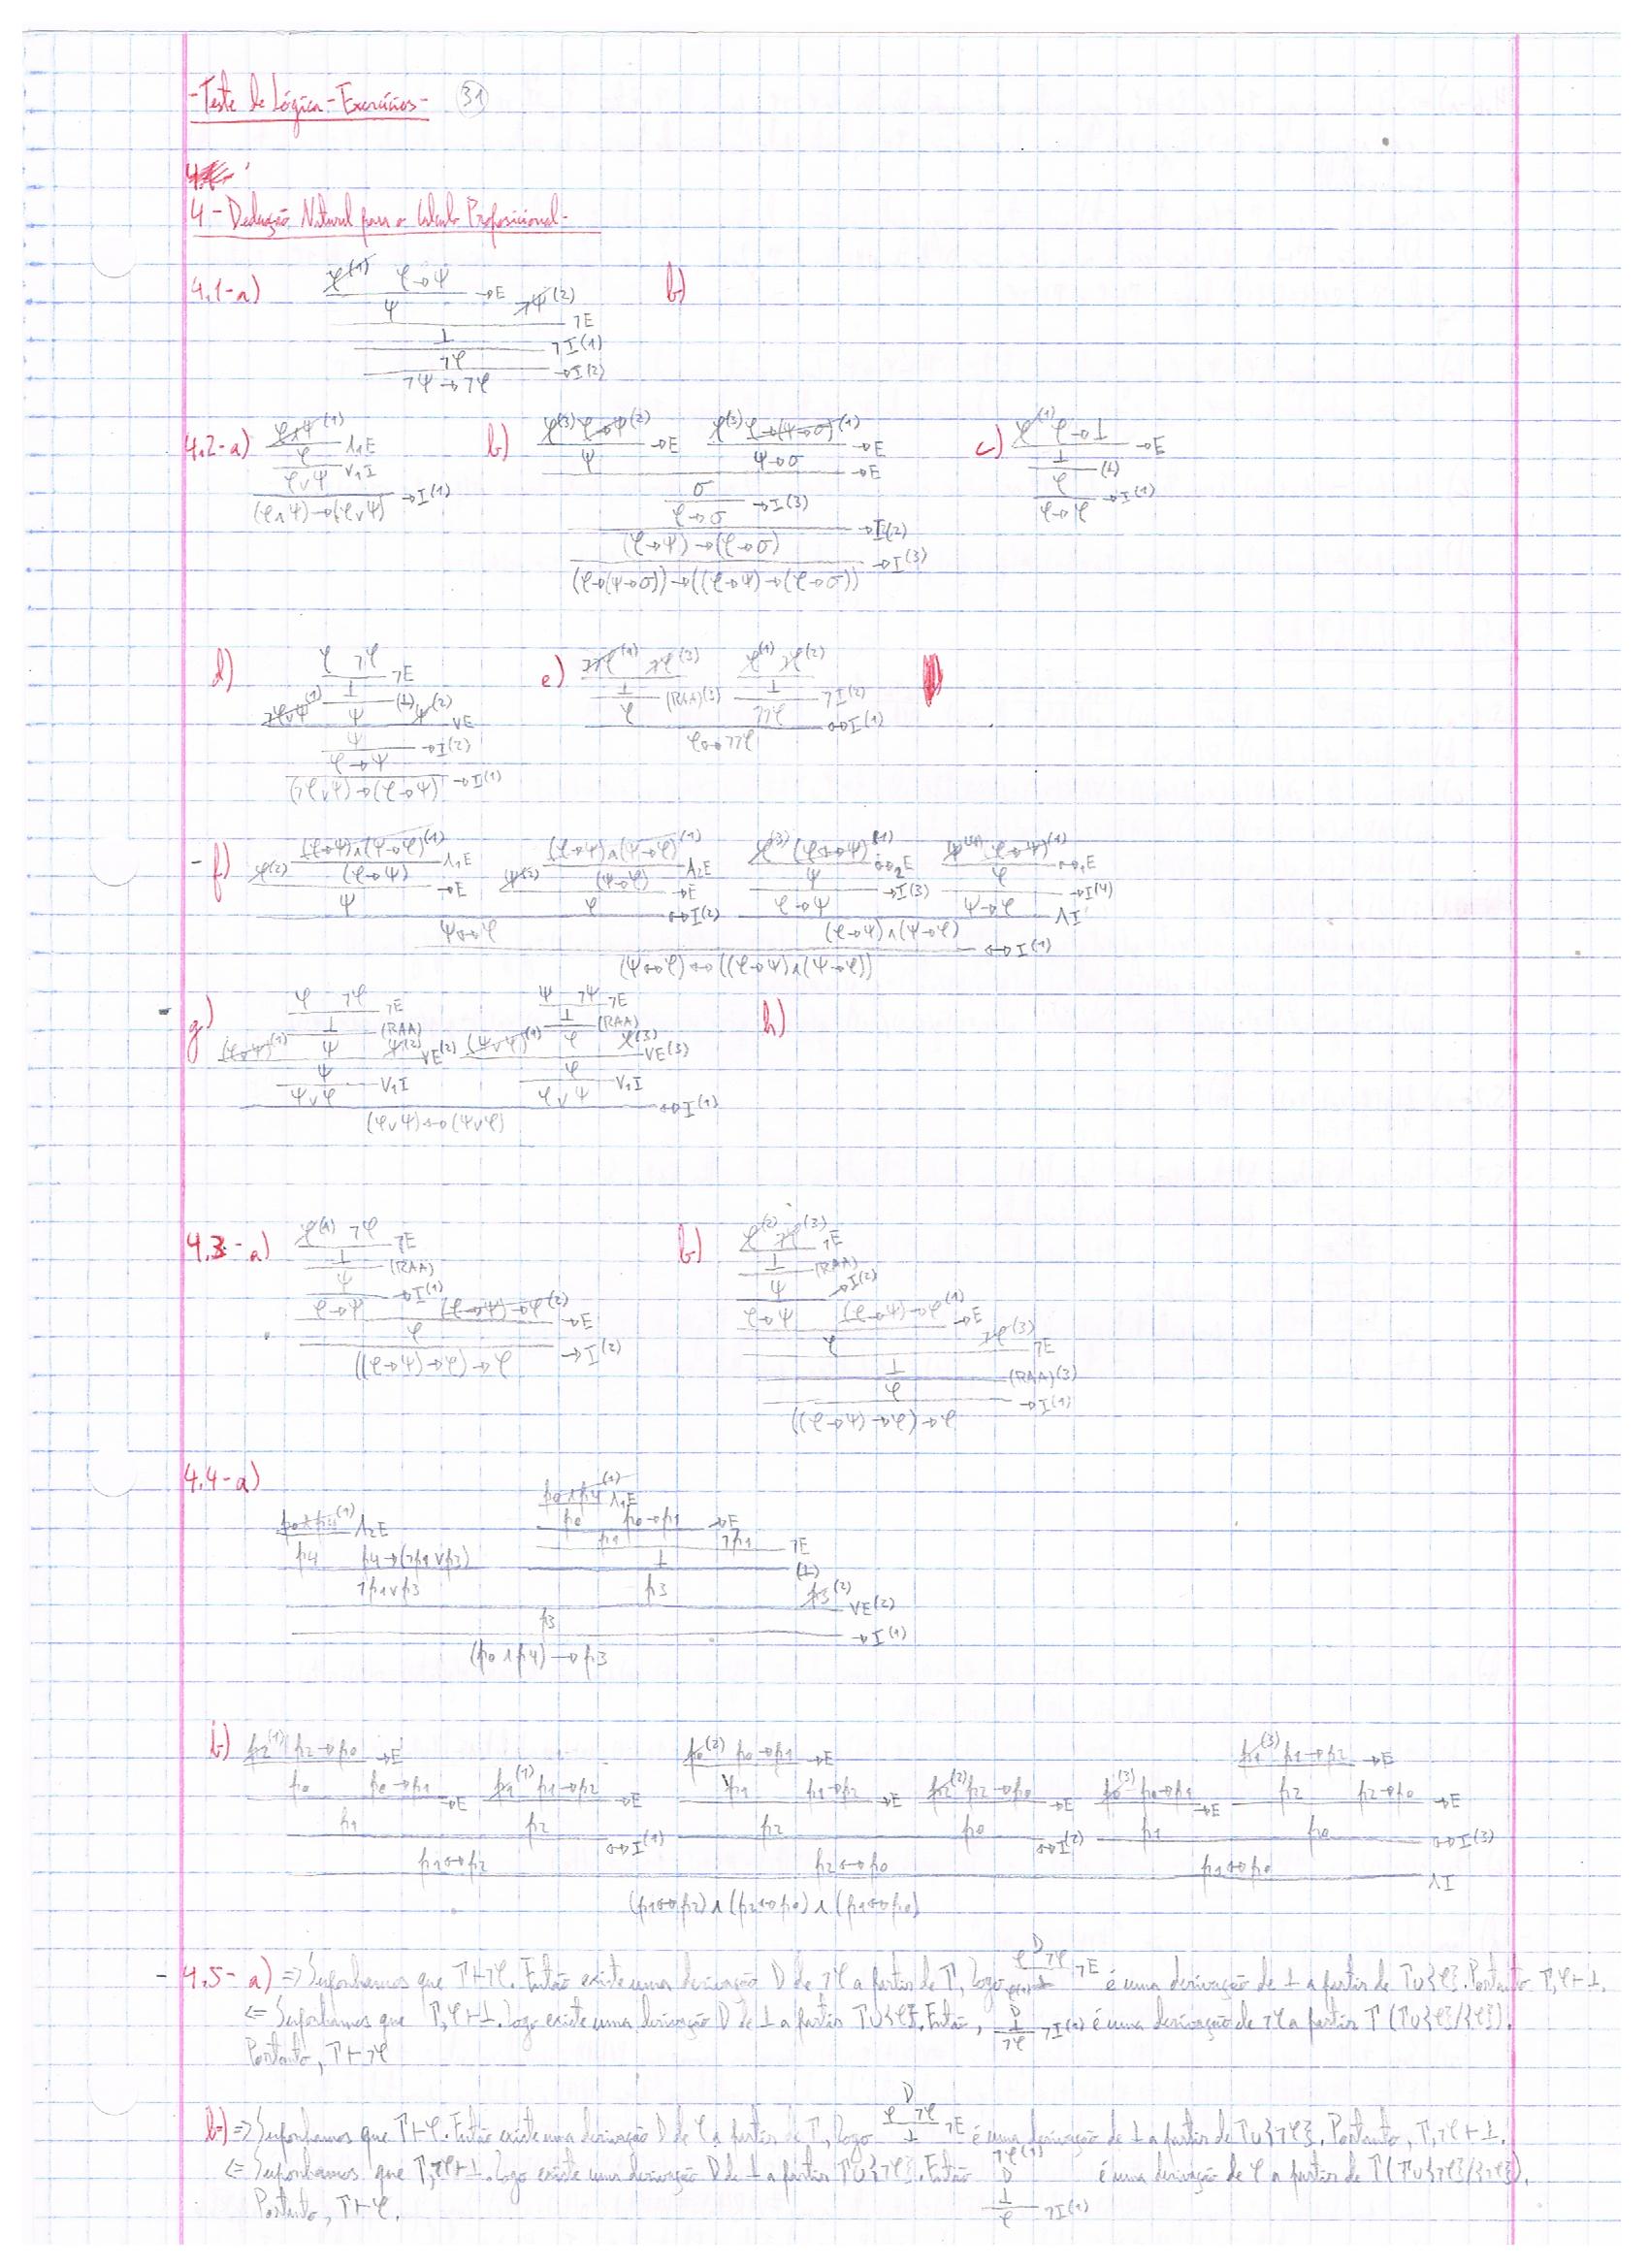 - Teste de Lógica - Exercícios - 31
4
4 - Dedução Natural para o Cálculo Proposicional -
4.1 - a) φ(1) φ→ψ →E ¬ψ(2) b)
ψ ¬E
⊥ ¬I(1)
¬φ →I(2)
¬ψ→¬φ
4.2 - a) φ∧ψ(1) ∧1E
φ ∨1I
φ∨ψ →I(1)
(φ∧ψ)→(φ∨ψ)
b) φ(3) φ→ψ(2) →E φ(3) φ→(ψ→σ)(1) →E
ψ ψ→σ →E
σ →I(3)
φ→σ →I(2)
(φ→ψ)→(φ→σ) →I(3)
(φ→(ψ→σ))→((φ→ψ)→(φ→σ))
c) φ(1) φ→⊥ →E
⊥ (⊥)
φ →I(1)
φ→φ
d) φ ¬φ ¬E
¬φ∨ψ(1) ⊥ (⊥) ψ(2)
ψ ∨E
ψ →I(2)
φ→ψ →I(1)
(¬φ∨ψ)→(φ→ψ)
e) ¬¬φ(1) ¬φ(3) φ(1) ¬φ(2)
⊥ (RAA)(3) ⊥ ¬I(2)
φ ¬¬φ ↔I(1)
φ↔¬¬φ
- f) (φ→ψ)∧(ψ→φ)(1) ∧1E (φ→ψ)∧(ψ→φ)(1) ∧2E φ(3) (φ↔ψ)(1) ↔2E ψ(4) (φ↔ψ)(1) ↔1E
φ(2) (φ→ψ) →E ψ(2) (ψ→φ) →E ψ →I(3) φ →I(4)
ψ φ ↔I(2) φ→ψ ψ→φ ∧I
ψ↔φ (φ→ψ)∧(ψ→φ) ↔I(1)
(ψ↔φ)↔((φ→ψ)∧(ψ→φ))
g) φ ¬φ ¬E ψ ¬ψ ¬E h)
⊥ (RAA) ⊥ (RAA)
(φ∨ψ)(1) ψ ψ(2) ∨E(2) (ψ∨φ)(1) φ φ(3) ∨E(3)
ψ ∨1I φ ∨1I
ψ∨φ φ∨ψ ↔I(1)
(φ∨ψ)↔(ψ∨φ)
4.3 - a) φ(1) ¬φ ¬E
⊥ (RAA)
ψ →I(1)
φ→ψ (φ→ψ)→φ(2) →E
φ →I(2)
((φ→ψ)→φ)→φ
b) φ(2) ¬φ(3) ¬E
⊥ (RAA)
ψ →I(2)
φ→ψ (φ→ψ)→φ(1) →E
φ ¬φ(3) ¬E
⊥ (RAA)(3)
φ →I(1)
((φ→ψ)→φ)→φ
4.4 - a)
p0∧p4(1) ∧1E
p0∧p4(1) ∧2E p0 p0→p1 →E
p4 p4→(¬p1∨p3) p1 ¬p1 ¬E
¬p1∨p3 ⊥ (⊥)
p3 p3(2) ∨E(2)
p3 →I(1)
(p0∧p4)→p3
i) p2(1) p2→p0 →E p0(2) p0→p1 →E p1(3) p1→p2 →E
p0 p0→p1 →E p1(1) p1→p2 →E p1 p1→p2 →E p2(2) p2→p0 →E p0(3) p0→p1 →E p2 p2→p0 →E
p1 p2 ↔I(1) p2 p0 ↔I(2) p1 p0 ↔I(3)
p1↔p2 p2↔p0 p1↔p0 ∧I
(p1↔p2)∧(p2↔p0)∧(p1↔p0)
- 4.5 - a) ⇒ Suponhamos que Γ⊢¬φ. Então existe uma derivação D de ¬φ a partir de Γ, logo D φ ¬φ ⊥ ¬E é uma derivação de ⊥ a partir de Γ∪{φ}. Portanto Γ,φ⊢⊥.
⇐ Suponhamos que Γ,φ⊢⊥. Logo existe uma derivação D de ⊥ a partir Γ∪{φ}. Então, D ⊥ ¬φ ¬I(1) é uma derivação de ¬φ a partir Γ (Γ∪{φ}/{φ}).
Portanto, Γ⊢¬φ
b) ⇒ Suponhamos que Γ⊢φ. Então existe uma derivação D de φ a partir de Γ, logo D φ ¬φ ⊥ ¬E é uma derivação de ⊥ a partir de Γ∪{¬φ}. Portanto, Γ,¬φ⊢⊥.
⇐ Suponhamos que Γ,¬φ⊢⊥. Logo existe uma derivação D de ⊥ a partir Γ∪{¬φ}. Então ¬φ(1) D ⊥ φ ¬I(1) é uma derivação de φ a partir de Γ (Γ∪{¬φ}/{¬φ}).
Portanto, Γ⊢φ.